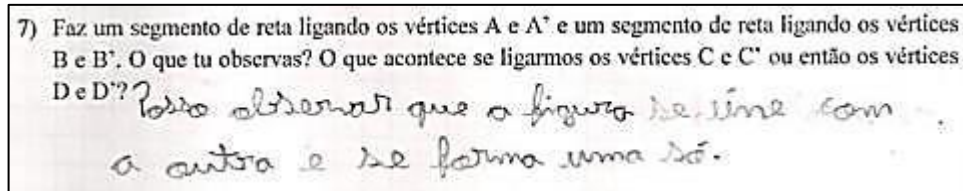 7) Faz um segmento de reta ligando os vértices A e A' e um segmento de reta ligando os vértices
B e B'. O que tu observas? O que acontece se ligarmos os vértices C e C' ou então os vértices
D e D'? Posso observar que a figura se úne com
a outra e se forma uma só.